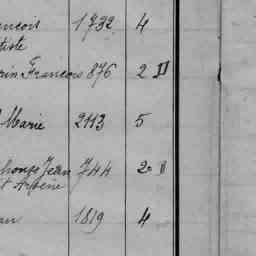 ncois 1732 4
tiste
rin Francois 876 2 II
Marie 2113 5
phonse Jean 744 2 II
t Arsène
an 1819 4